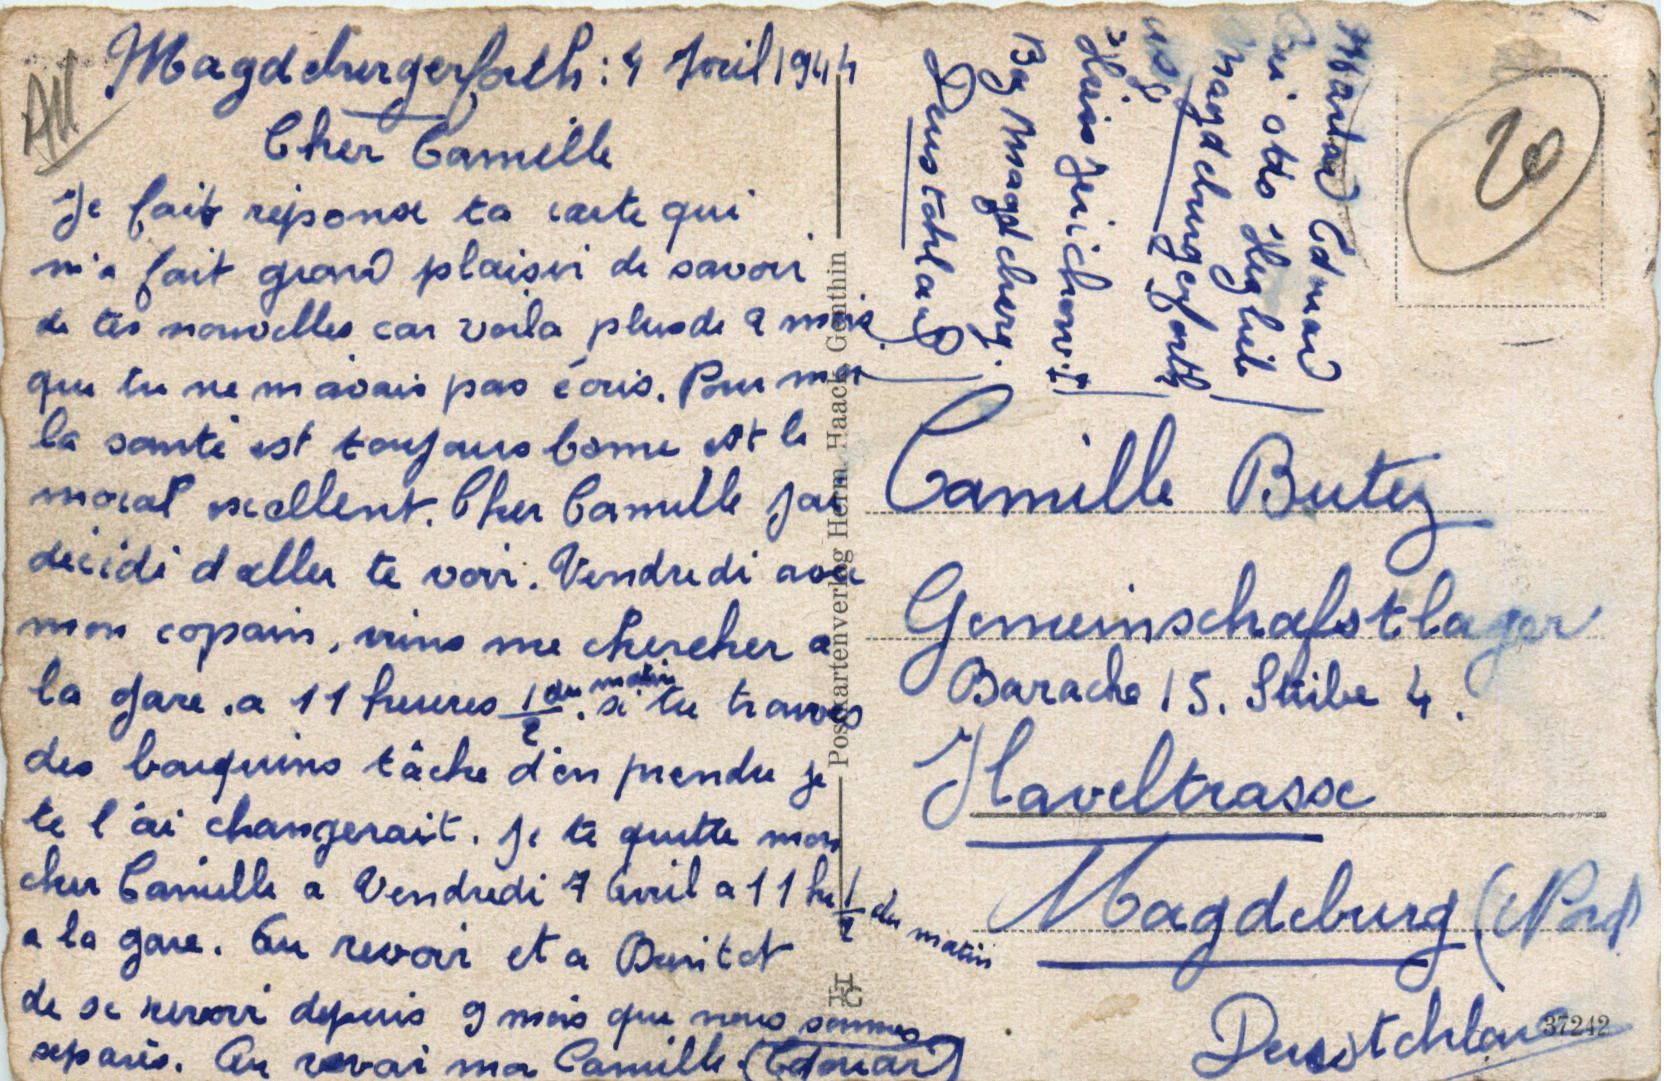 AU
Magdeburgerforth : 4 Avril 1944
Cher Camille
Je fait réponse ta carte qui
m'a fait grand plaisir de savoir
de tes nouvelles car voila plus de 2 mois
que tu ne m'avais pas écris. Pour moi
la santé est toujours bonne est le
moral excellent. Cher Camille j'ai
décidé d'aller te voir. Vendredi avec
mon copain, viens me chercher a
la gare. a 11 heures 1/2 du matin. si tu trouves
des bouquins tâche d'en prendre je
te l'ai changerait. Je te quitte mon
cher Camille a Vendredi 7 Avril a 11 he 1/2 du matin
a la gare. Au revoir et a Bientot
de se revoir depuis 9 mois que nous sommes
separés. Au revoir mon Camille (Edouard)
Postkartenverlag Herm. Haack, Genthin
HHG
Edouard
Bei otto
Magdeburgerforth
Bez Magdeberg.
Deustchland
20
Camille Butez
Gemeinschafstlager
Barache 15. Stube 4.
Haveltrasse
Magdeburg (Nord)
Deustchland
37242